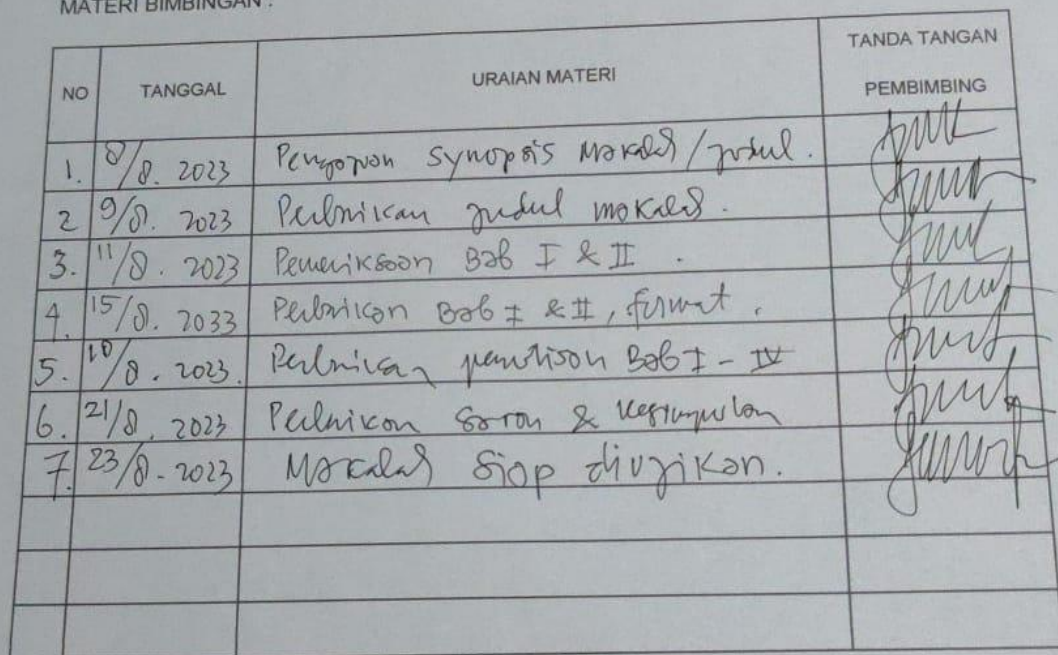 MATERI BIMBINGAN :
NO TANGGAL URAIAN MATERI TANDA TANGAN PEMBIMBING
1. 8/8. 2023 Pengajuan Synopsis Makalah / judul.
2 9/8. 2023 Perbaikan judul makalah.
3. 11/8. 2023 Pemeriksaan Bab I & II .
4. 15/8. 2033 Perbaikan Bab I & II, format .
5. /8. 2023. Perbaikan penulisan Bab I - IV
6. 21/8. 2023 Perbaikan Saran & Kesimpulan
7. 23/8 - 2023 Makalah Siap diujikan.